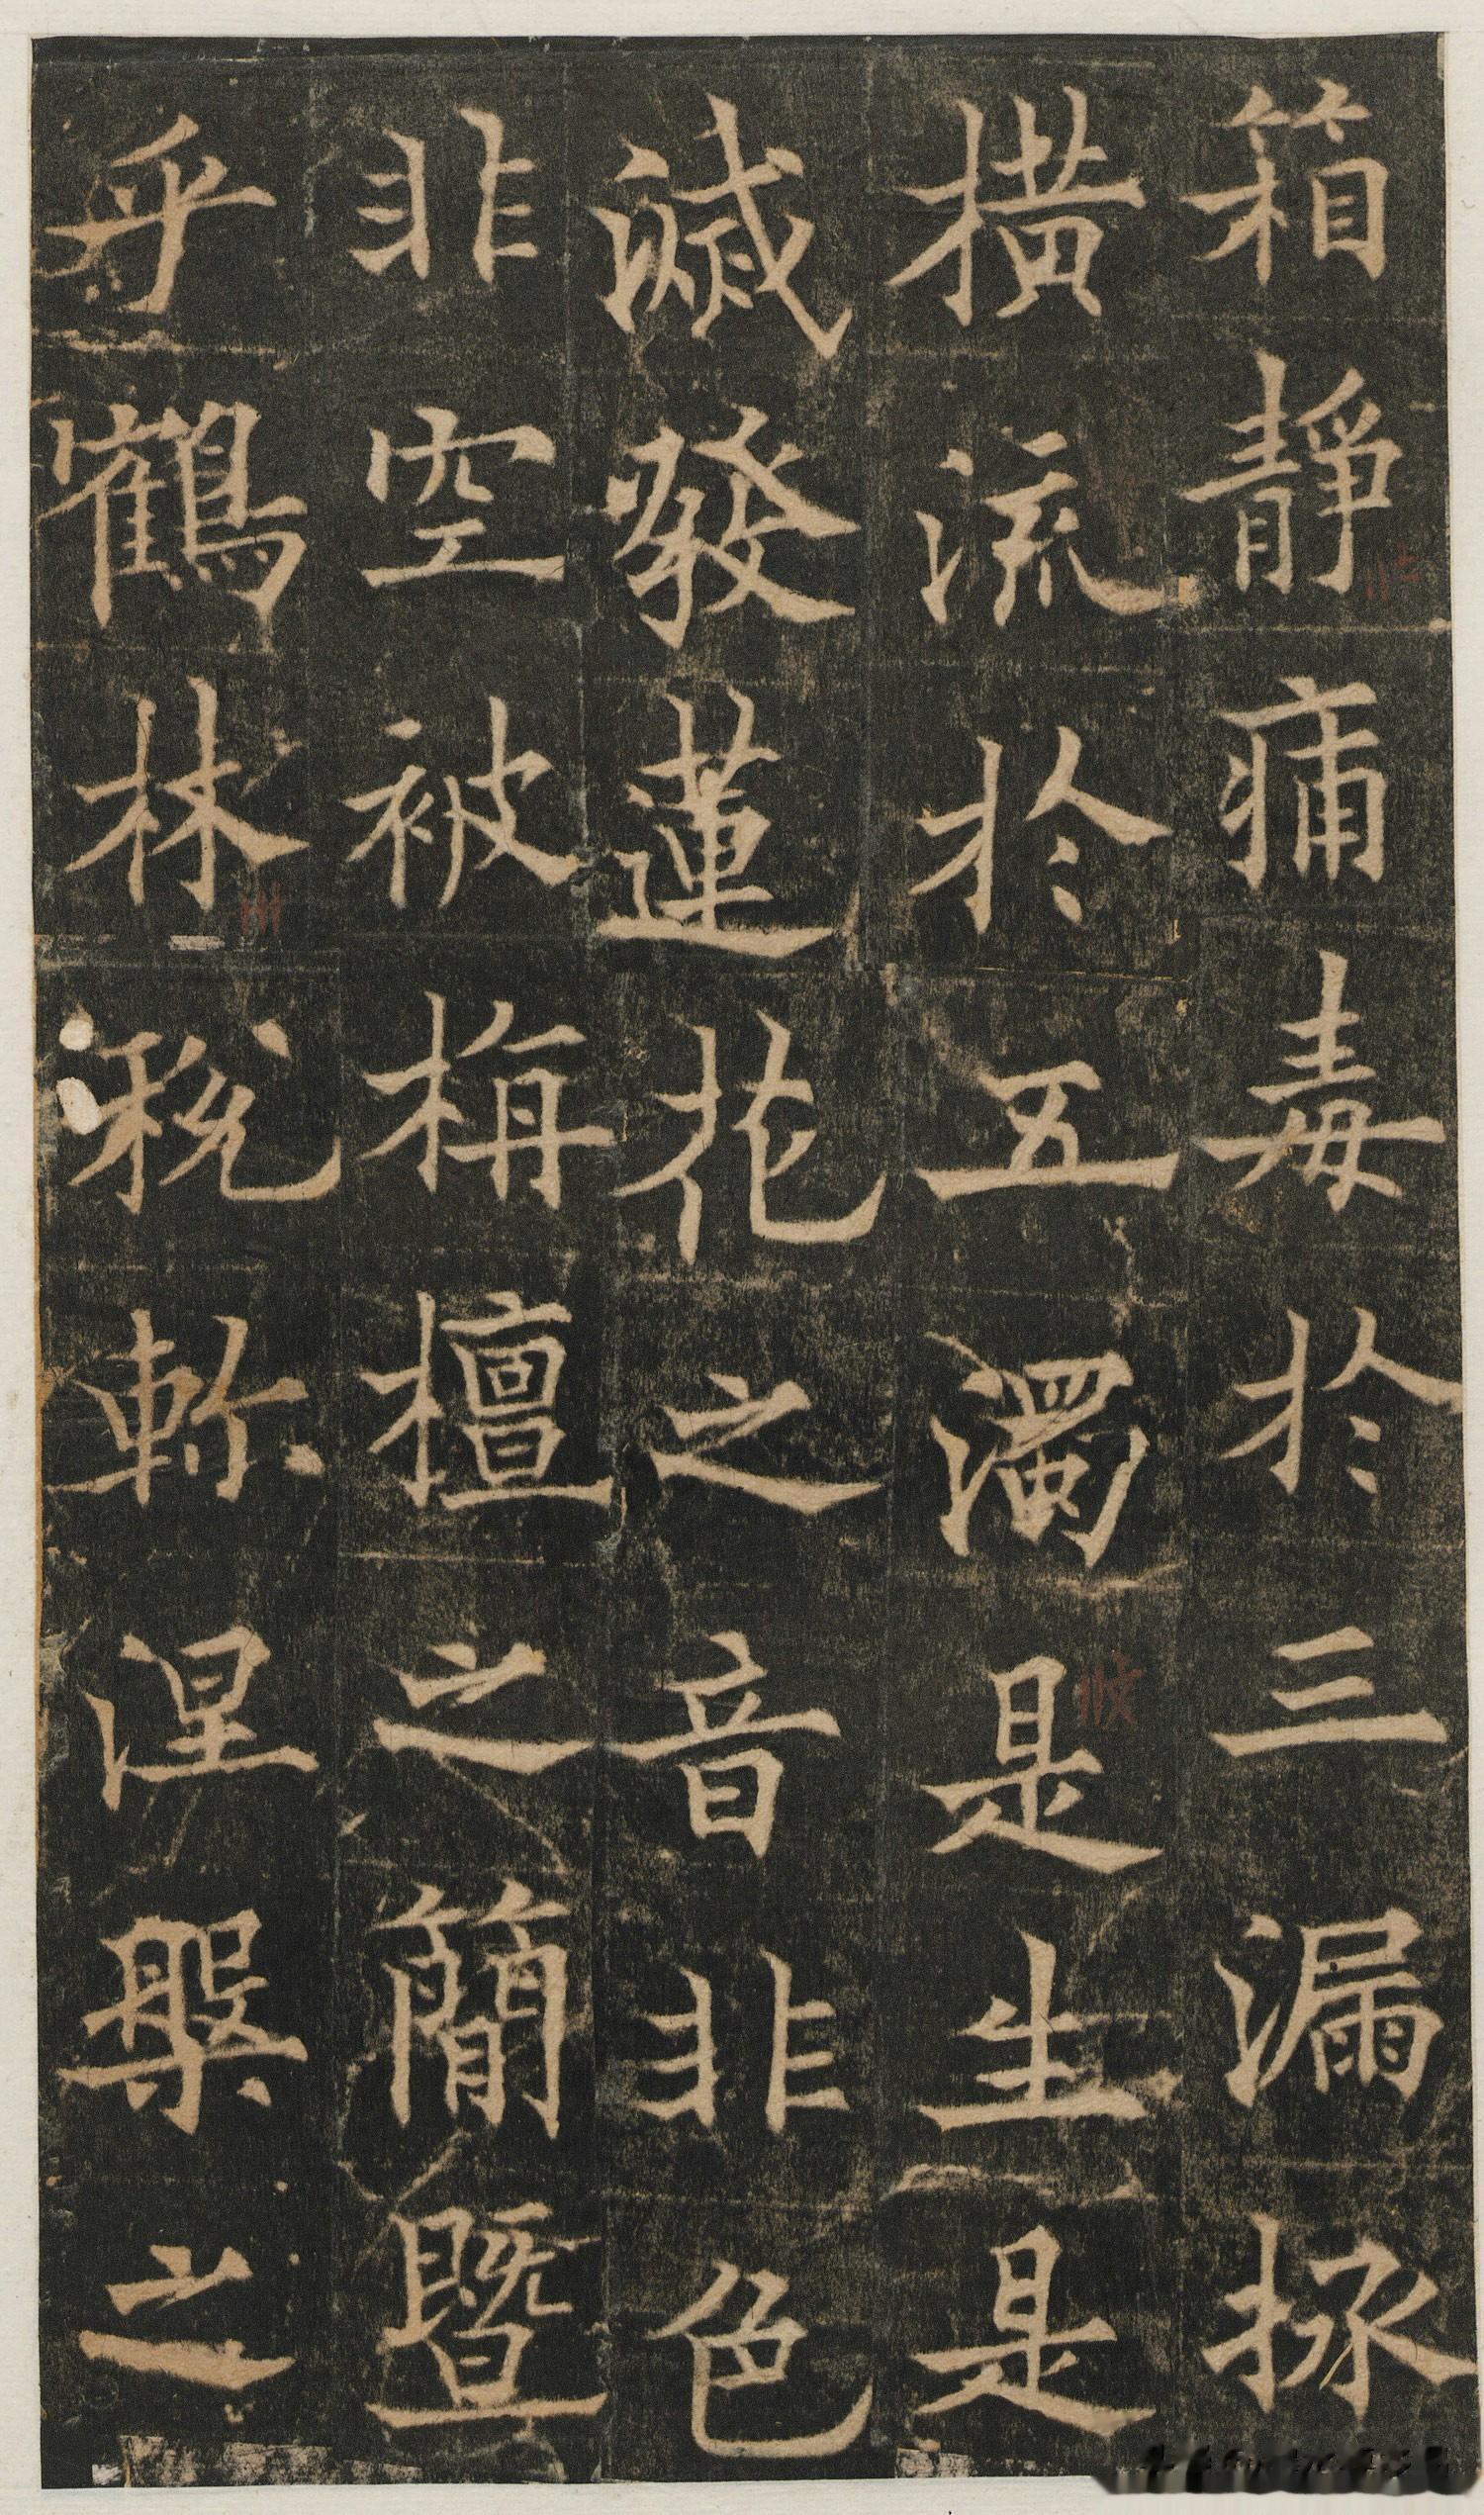 箱靜痛毒於三漏拯
橫流於五濁是生是
滅發蓮花之音非色
非空被栴檀之簡暨
乎鶴林稅軫涅槃之